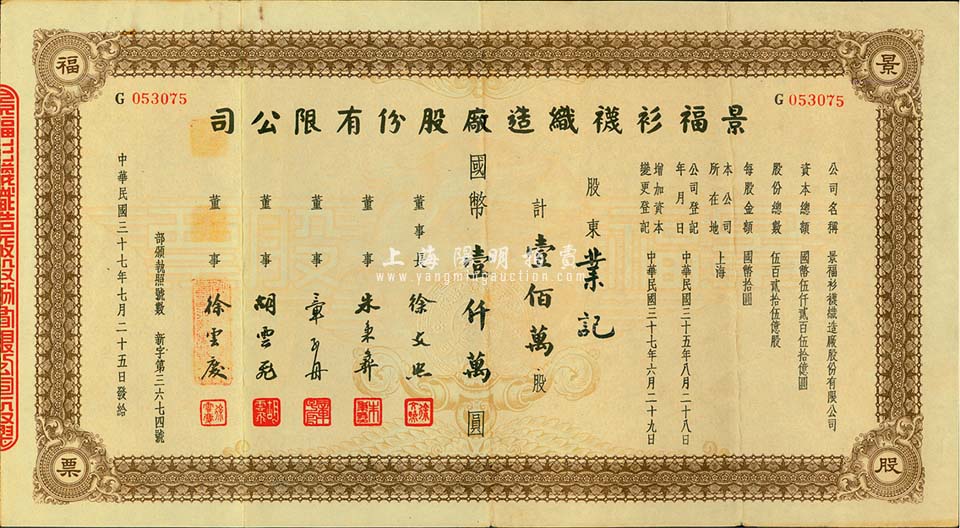 景 福 股 票
G 053075
G 053075
景福衫襪織造廠股份有限公司
公司名稱 景福衫襪織造廠股份有限公司
資本總額 國幣伍仟貳百伍拾億圓
股份總數 伍百貳拾伍億股
每股金額 國幣拾圓
本公司所在地 上海
公司登記年月日 中華民國三十五年八月二十八日
增加資本變更登記 中華民國三十七年六月二十九日
股東 業記
計 壹佰萬 股
國幣 壹仟萬 圓
董事長 徐文照
董事 朱秉彝
董事 章
董事 胡雲
董事 徐雲慶
部頒執照號數 新字第三六七四號
中華民國三十七年七月二十五日發給
上海陽明拍賣
www.yangmingauction.com